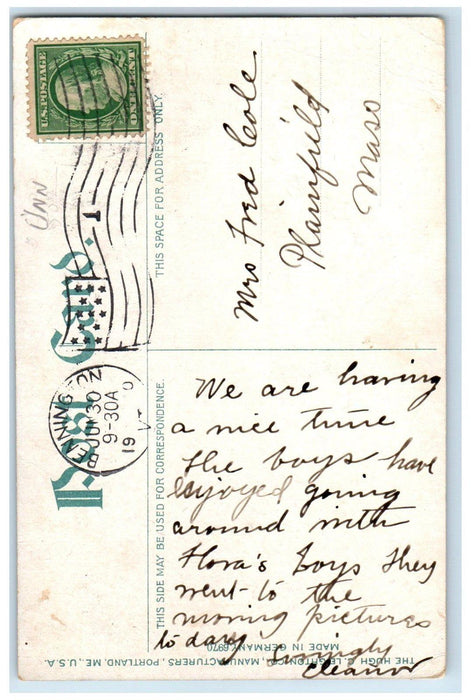 U.S. POSTAGE
ONE CENT
Ann
Post Card.
1
BENNINGTON
JUN 30
9-30A
19
VT
THIS SPACE FOR ADDRESS ONLY.
Mrs Fred Cole
Plainfield
Mass
THIS SIDE MAY BE USED FOR CORRESPONDENCE.
We are having
a nice time
the boys have
enjoyed going
around with
Flora's boys they
went to the
moving pictures
to day Lovingly
Eleanor
THE HUGH C. LEIGHTON CO., MANUFACTURERS, PORTLAND, ME., U.S.A.
MADE IN GERMANY. 6970